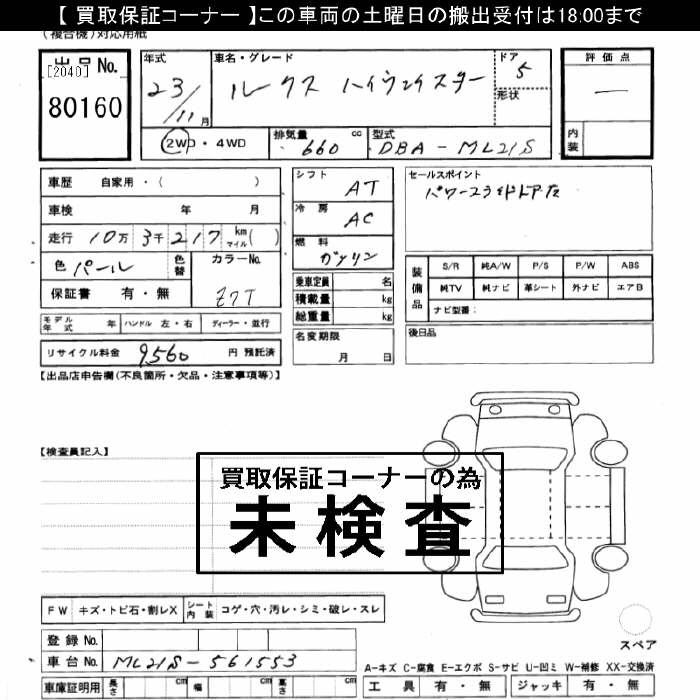 【 買取保証コーナー 】この車両の土曜日の搬出受付は18:00まで
(複合機)対応用紙
出品No.
[2040]
80160
年式 23/11月
車名・グレード ルークス ハイウェイスター
ドア 5
形状
評価点 ー
内装
2WD・4WD
排気量 660 cc
型式 DBA-ML21S
車歴 自家用・( )
車検 年 月
走行 10万3千217 km マイル( )
色 パール
色替
カラーNo. Z7T
保証書 有・無
シフト AT
冷房 AC
燃料 ガソリン
乗車定員 名
積載量 kg
総重量 kg
セールスポイント
装備品 S/R 純A/W P/S P/W ABS
純TV 純ナビ 革シート 外ナビ エアB
ナビ型番:
モデル年式 年 ハンドル 左・右 ディーラー・並行
名変期限 月 日
後日品
リサイクル料金 9560 円 預託済
【出品店申告欄(不良箇所・欠品・注意事項等)】
【検査員記入】
買取保証コーナーの為
未検査
FW キズ・トビ石・割レX シート内装 コゲ・穴・汚レ・シミ・破レ・スレ
スペア
登録No.
車台No. ML21S-561553
A-キズ C-腐食 E-エクボ S-サビ U-凹ミ W-補修 XX-交換済
車庫証明用 長さ cm 幅 cm 高さ cm
工具 有・無 ジャッキ 有・無